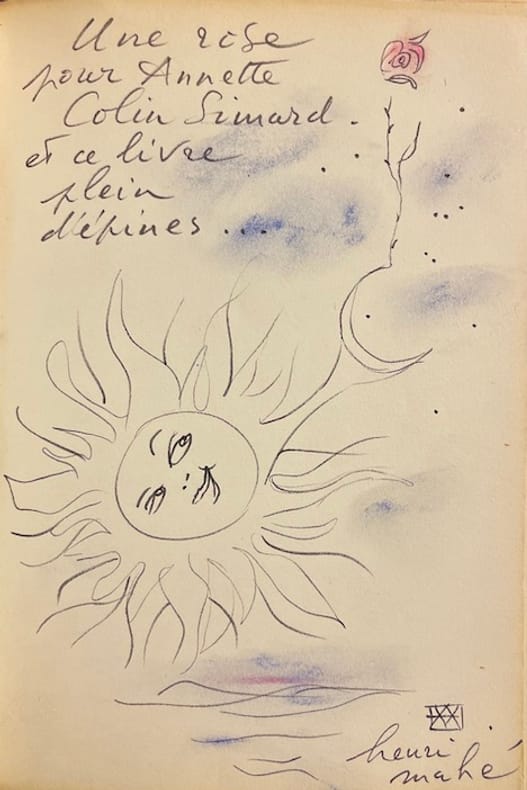 Une rose
pour Annette
Colin Simard.
et ce livre
plein
d'épines...
henri
mahé